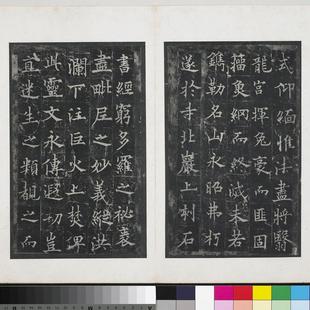 式仰緬惟法盡將翳
龍宮揮兔豪而匪固
網而終滅未若
鐫勒名山永昭弗朽
遂於寺北巖上刻石
書經窮多羅之秘袠
盡毗尼之妙義縱洪
瀾下注巨火上焚俾
此靈文永傳遐劫豈
直迷生之類覩之而